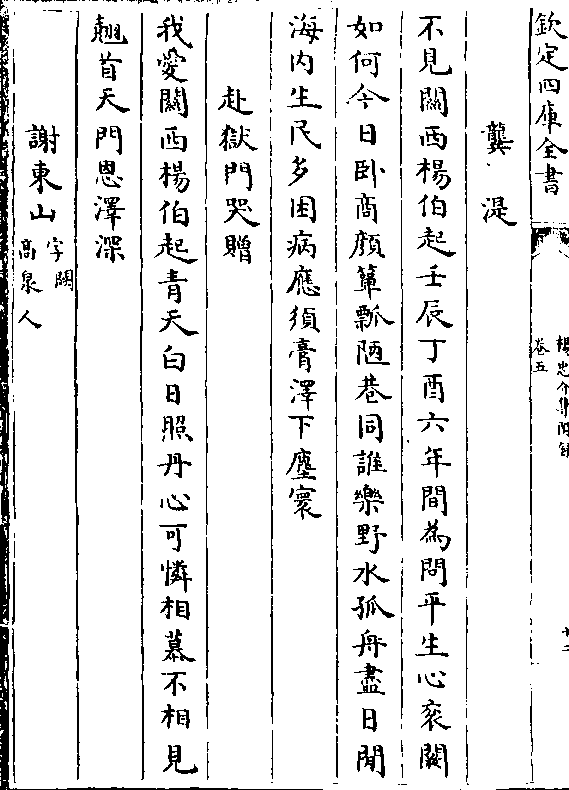 欽定四庫全書
楊忠介集附錄
卷五
十二
龔湜
不見關西楊伯起壬辰丁酉六年間為問平生心衮闕
如何今日卧商顔簞瓢陋巷同誰樂野水孤舟盡日閒
海内生民多困病應須膏澤下塵寰
赴獄門哭贈
我愛關西楊伯起青天白日照丹心可憐相慕不相見
翹首天門恩澤深
謝東山字闕
高泉人